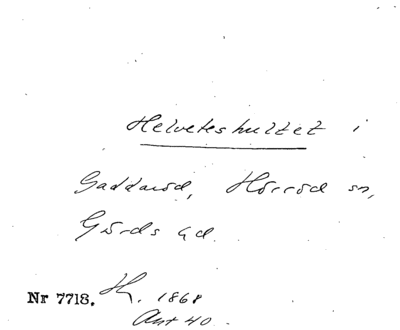 Helveteshultet i
Gaddaröd, Hörröd sn,
Gärds hd.
Nr 7718. H. 1868
Ant 40